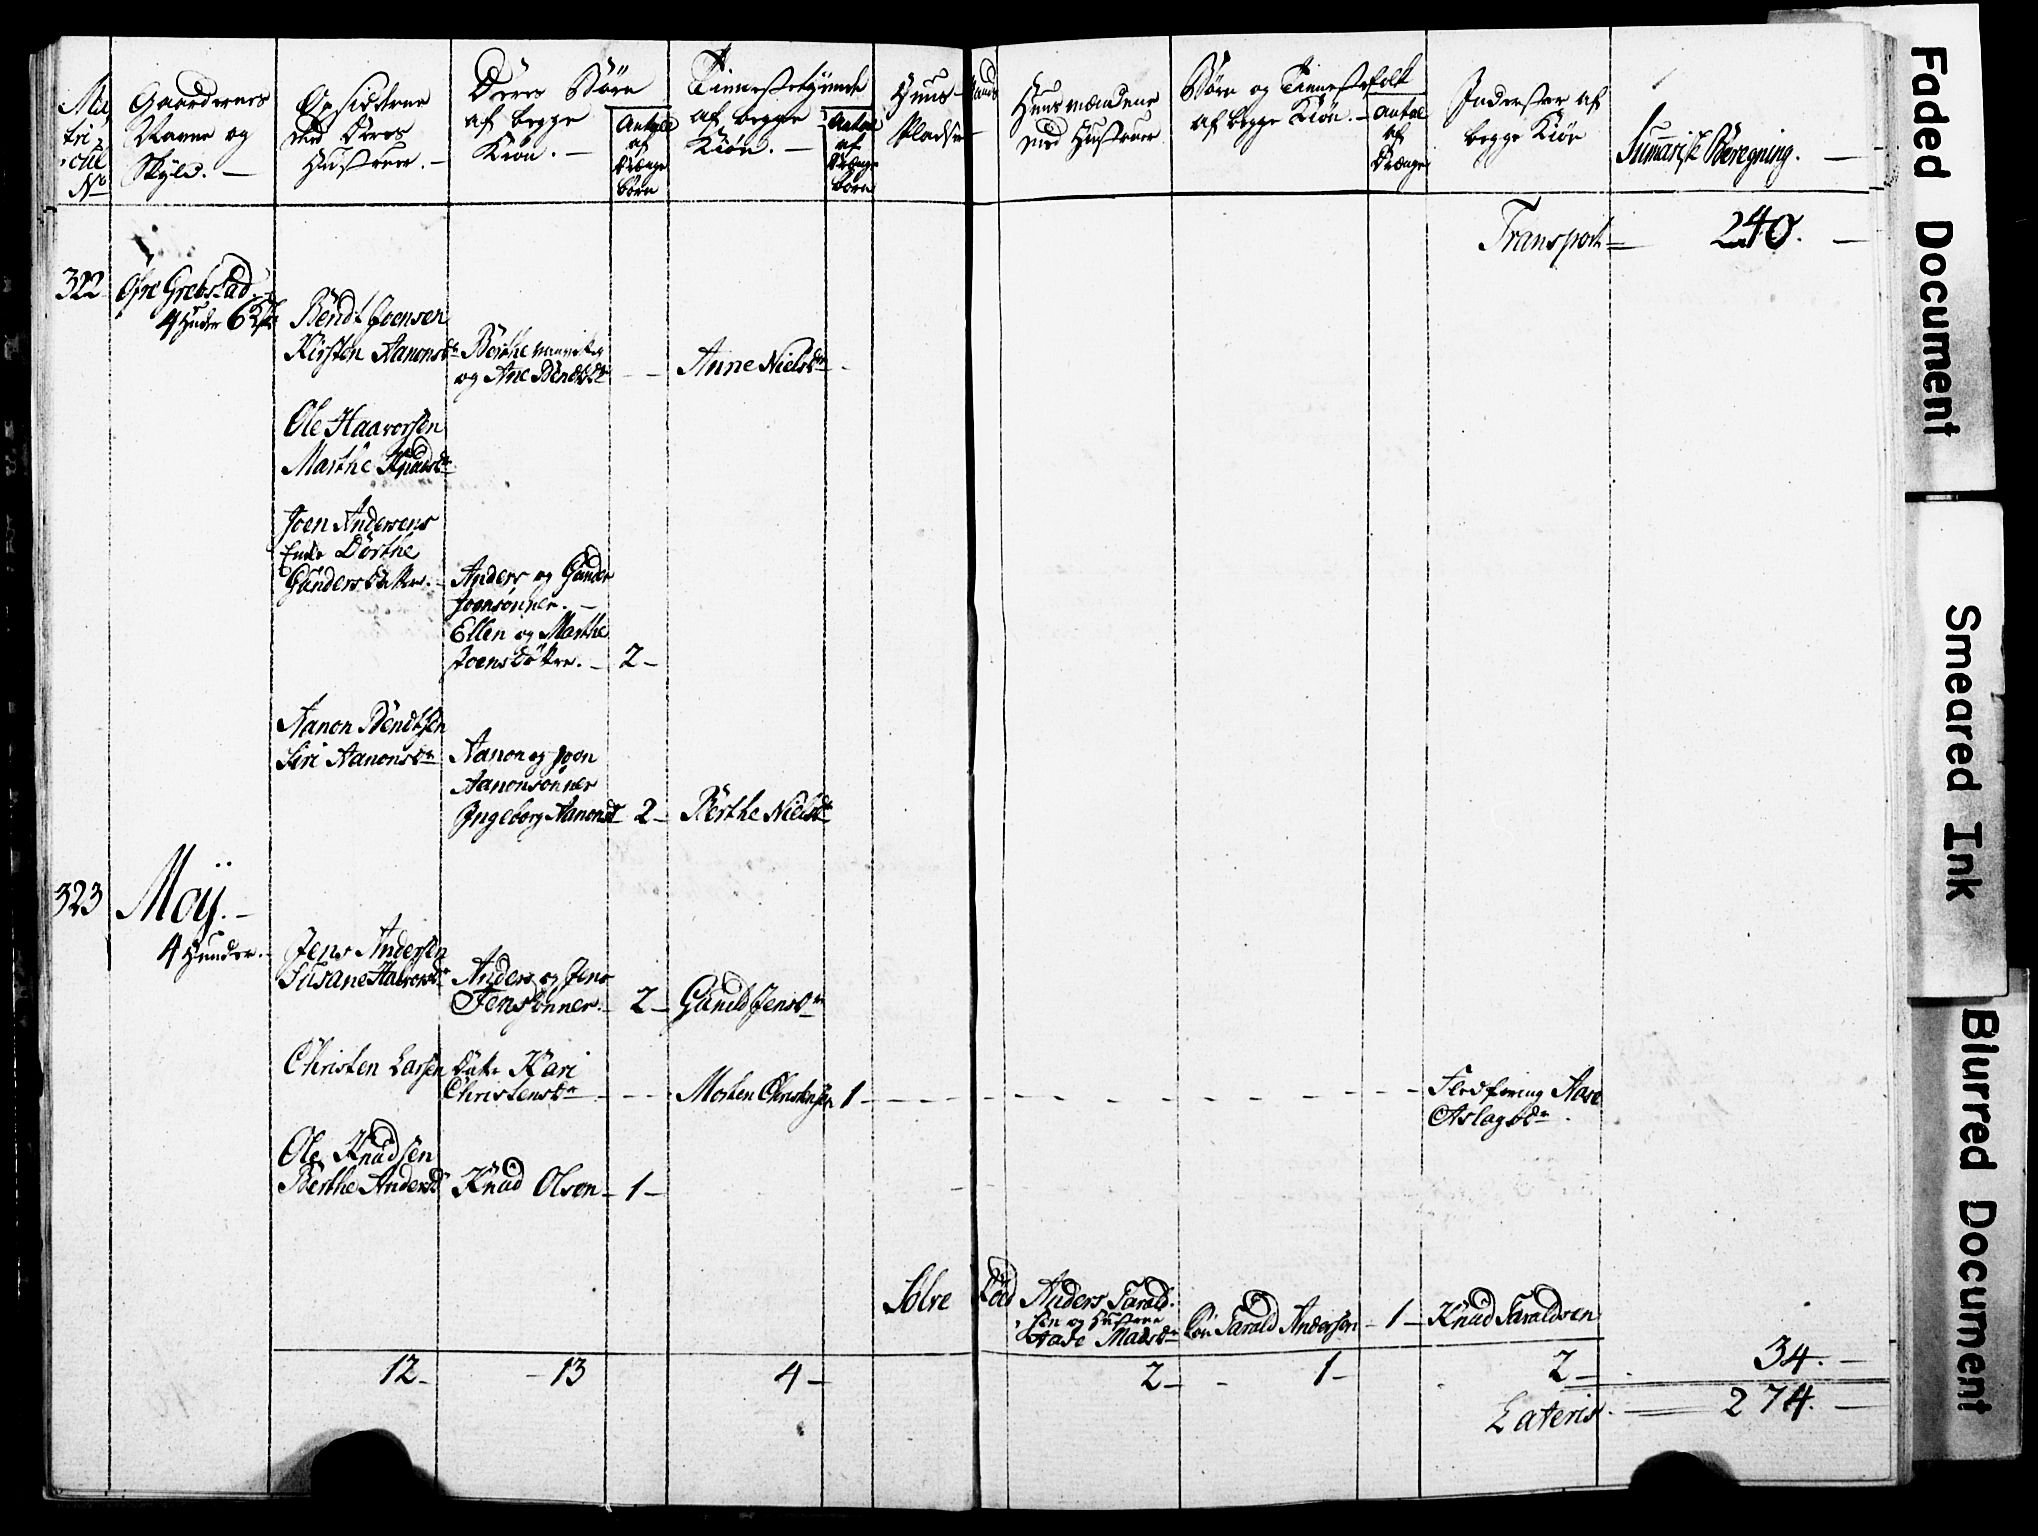 Ma
tri-
cul
No
Gaardernes
Navne og
Skyld. —
Opsidderne
med Deres
Hustruer. —
Deres Börn
af begge
Kiön. —
Antall
af
Drænge
börn
Tienestetyende
af begge
Kiön. —
Antal
af
Drænge
börn
Huus-
Pladser
Mands
Huusmændene
med Hustruer
Börn og Tienestefolk
af begge Kiön. —
Antal
af
Drænge
Inderster af
begge Kiön
Sumariske Beregning. —
Transport = 240. —
322 Öfre Grebstad. —
4 Huder 6
Bendt Joensen
Kirsten Aanonsdr
Berthe
og Ane Bendtsdr
Anne Nielsdr
Ole Haavorsen
Marthe Knudsdr
Joen Andersens
Enke Dorthe
Gundersdatter. —
Anders og Gunder
Joensönner. —
Ellen og Marthe
Joensdöttre. — 2 —
Aanon Bendtsen
Siri Aanonsdr
Aanon og Joen
Aanonsönner
Ingeborg Aanonsd 2 — Berthe Nielsdr
323 Moÿ. —
4 Huuder. —
Jens Andersen
Susane Halvorsdr
Anders og Jens
Jenssönner. — 2 — Gunild Jensdr
Christen Larsen
Datr Kari
Christensdr — Morten Christensen 1 —
Flodföring Aase
Aslagsdr
Ole Knudsen
Berthe Andersd
Knud Olsen — 1 —
Solve Röed
Anders Tarald-
sen og Hustrue
Aase Madsdr
Sön Tarald Andersen — 1 — Knud Taraldsen
12 — 13 4 — 2 — 1 — 2 — 34. —
Lateris. — 274. —
Faded Document
Smeared Ink
Blurred Document